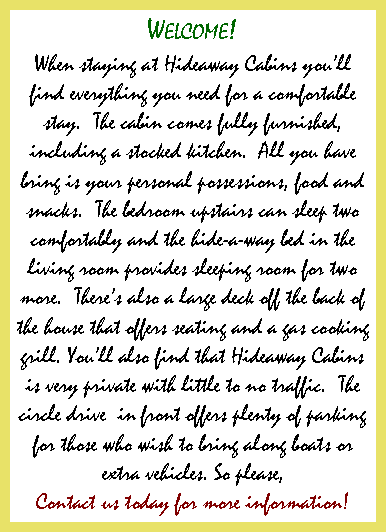 WELCOME!
When staying at Hideaway Cabins you'll
find everything you need for a comfortable
stay.  The cabin comes fully furnished,
including a stocked kitchen.  All you have
bring is your personal possessions, food and
snacks.  The bedroom upstairs can sleep two
comfortably and the hide-a-way bed in the
living room provides sleeping room for two
more.  There's also a large deck off the back of
the house that offers seating and a gas cooking
grill. You'll also find that Hideaway Cabins
is very private with little to no traffic.  The
circle drive  in front offers plenty of parking
for those who wish to bring along boats or
extra vehicles. So please,
Contact us today for more information!